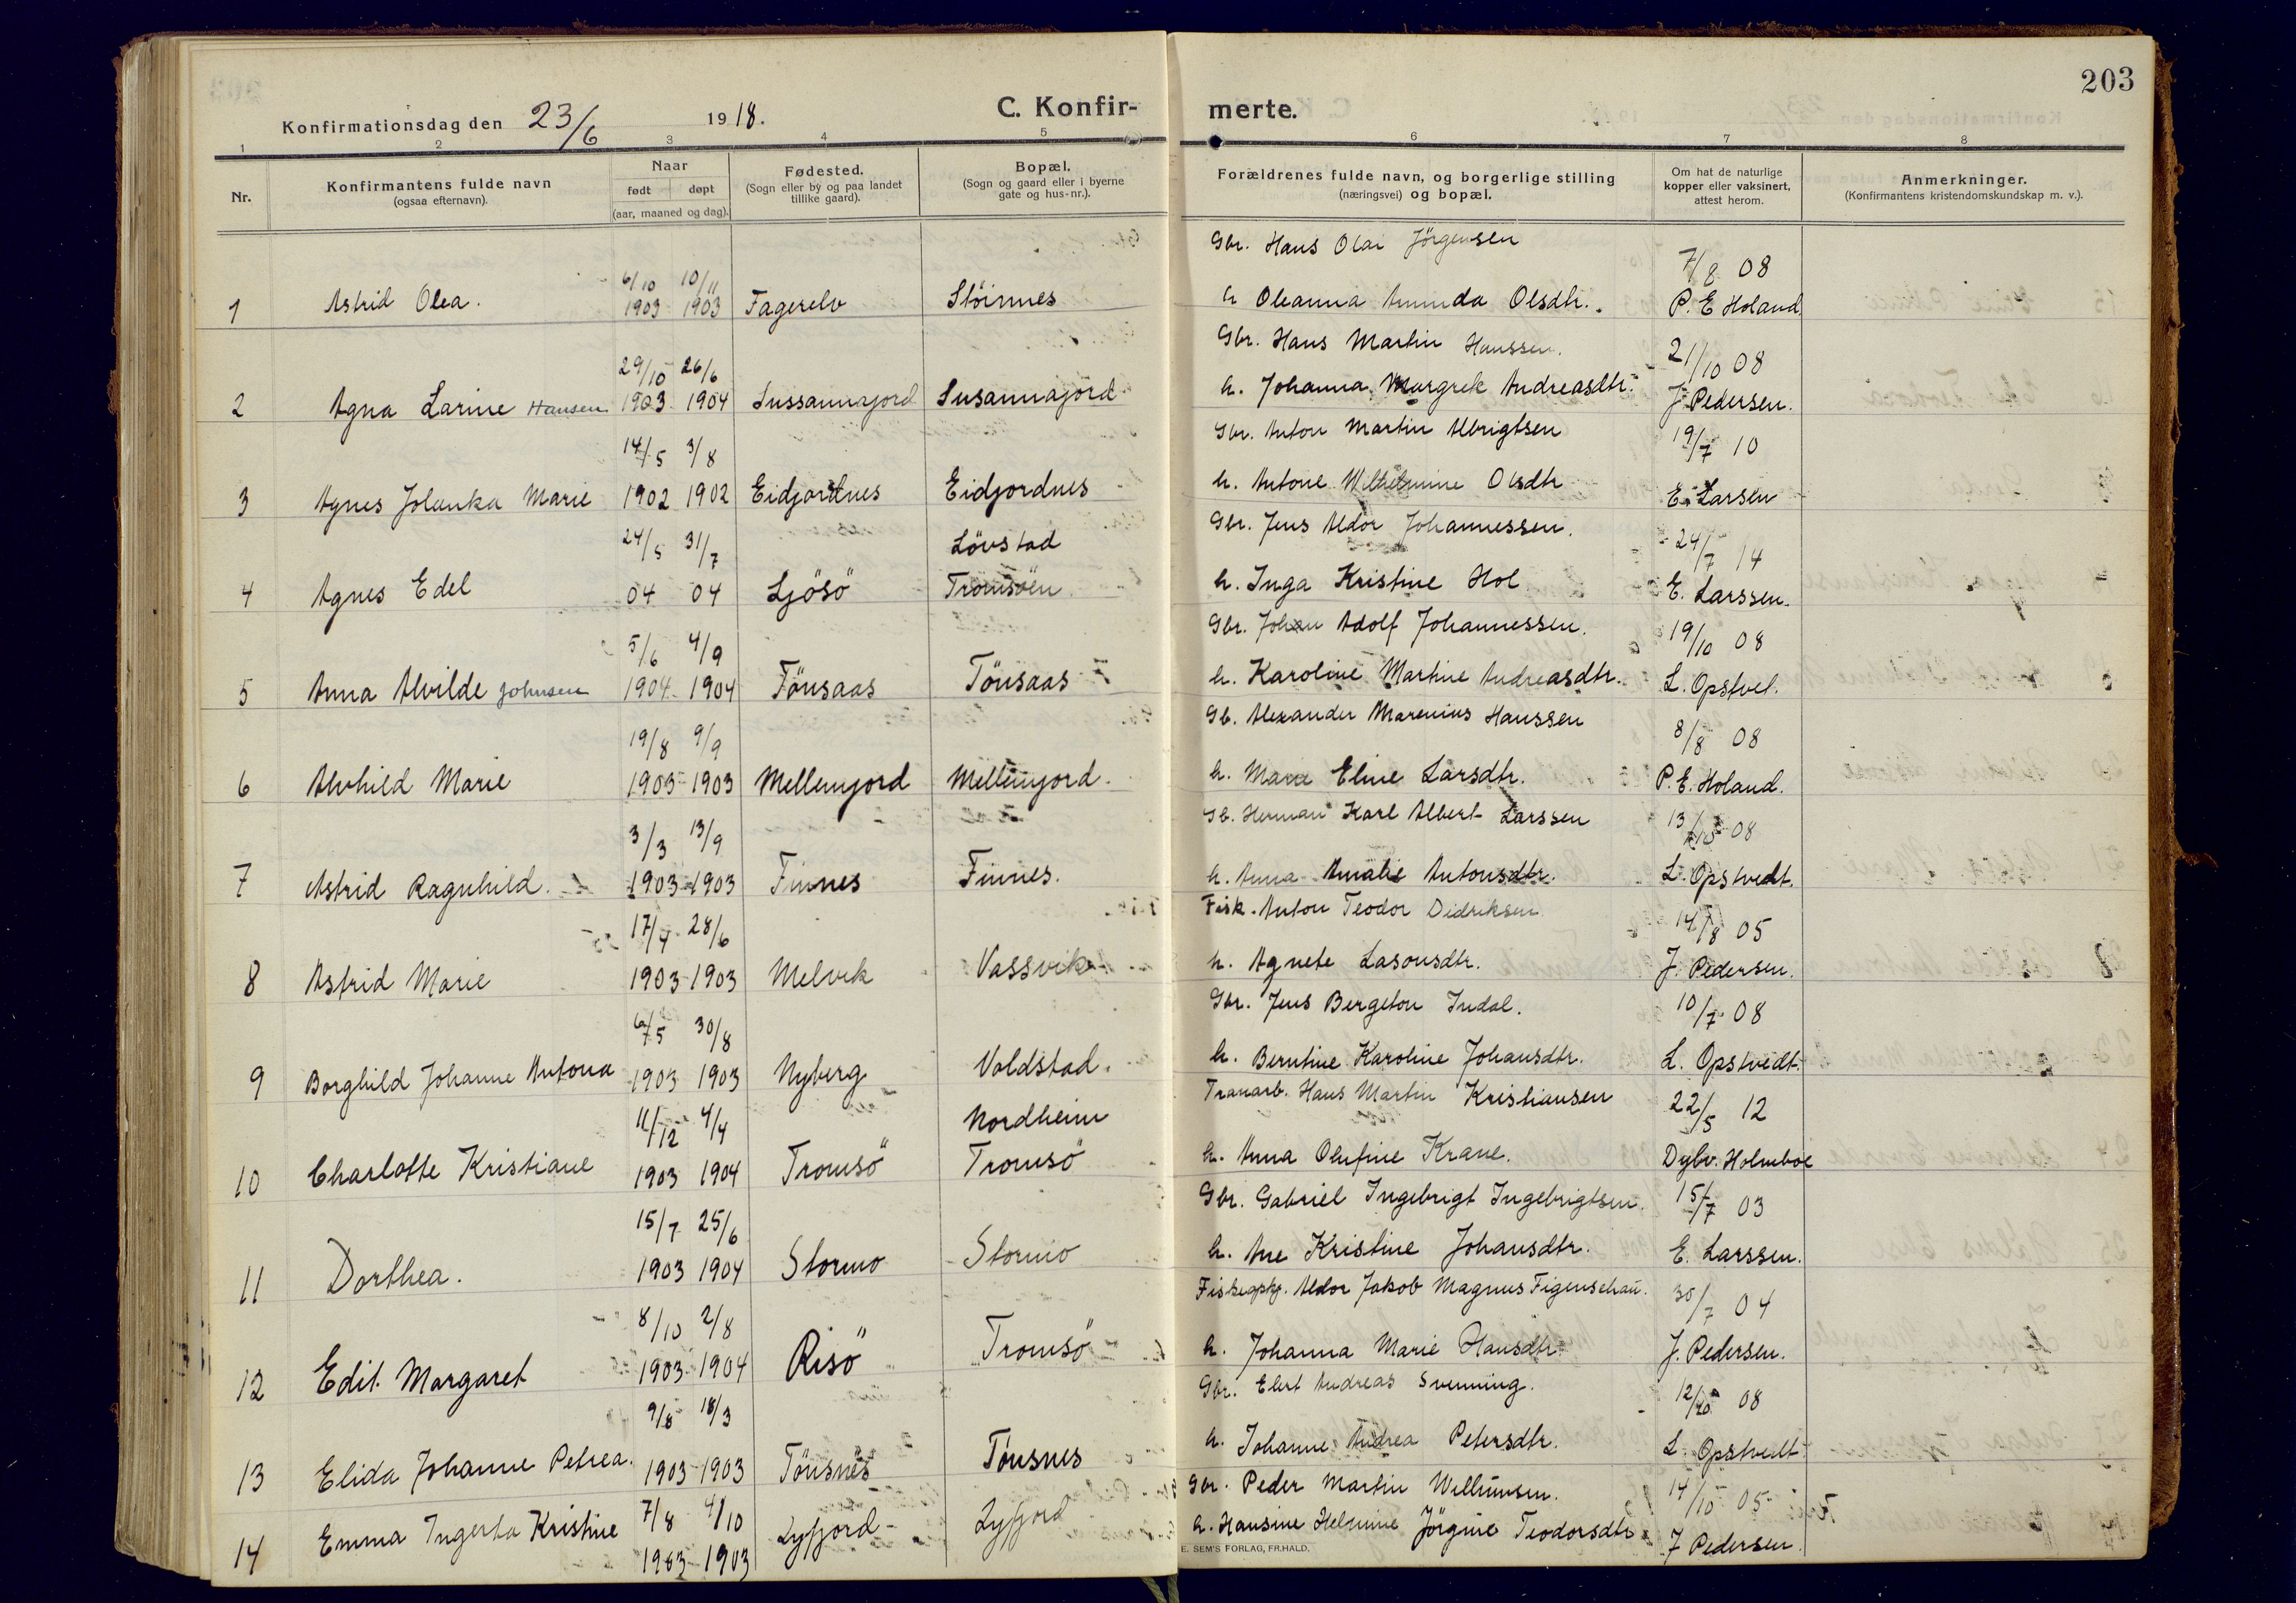 203
Konfirmationsdag den 23/6 1918.
C. Konfir-
merte.
1 2 3 4 5 6 7 8
Nr.
Konfirmantens fulde navn
(ogsaa efternavn).
Naar
født døpt
(aar, maaned og dag).
Fødested.
(Sogn eller by og paa landet
tillike gaard).
Bopæl.
(Sogn og gaard eller i byerne
gate og hus-nr.).
Forældrenes fulde navn, og borgerlige stilling
(næringsvei) og bopæl.
Om hat de naturlige
kopper eller vaksinert,
attest herom.
Anmerkninger.
(Konfirmantens kristendomskundskap m. v.).
6/10 10/11 Gbr. Hans Olai Jörgensen 7/8 08
1 Astrid Olea. 1903 1903 Fagerelv Slöinnes h Oleanna Aminda Olsdtr. P. E Holand.
29/10 26/6 Gbr. Hans Martin Hanssen. 21/10 08
2 Agna Larine Hansen 1903 1904 Sussannajord Susannajord h. Johanna Margrek Andreasdtr. J. Pedersen.
14/5 3/8 Gbr. Anton Martin Albrigtsen 19/7 10
3 Agnes Jolanka Marie 1902 1902 Eidjordnes Eidjordnes h. Antone Wilhelmine Olsdtr E. Larsen
24/5 31/7 Lövstad Gbr. Jens Aldor Johannessen. 24/7 14
4 Agnes Edel 04 04 Ljösö Tromsöen h. Inga Kristine Hol E. Larssen.
5/6 4/9 Gbr. Johan Adolf Johannessen. 19/10 08
5 Anna Alvilde Johnsen 1904 1904 Tönsaas Tönsaas h. Karoline Martine Andreasdtr. L. Opstvet.
19/8 9/9 Gb. Alexander Marenius Hanssen 8/8 08
6 Alvhild Marie 1903 1903 Mellemjord Mellemjord. h. Marie Eline Larsdtr. P. E. Holand.
3/3 13/9 Gb. Herman Karl Albert Larssen 13/10 08
7 Astrid Ragnhild. 1903 1903 Finnes Finnes. h. Anna Amalie Antonsdtr. L. Opstvedt.
17/4 28/6 Fisk. Anton Teodor Didriksen 14/8 05
8 Astrid Marie 1903 1903 Melvik Vassvik h. Agnete Lasonsdtr. J. Pedersen.
6/5 30/8 Gbr. Jens Bergeton Indal. 10/7 08
9 Borghild Johanne Antona 1903 1903 Nyberg Voldstad. h. Berntine Karoline Johansdtr. L. Opstvedt.
11/12 4/4 Nordheim Tranarb. Hans Martin Kristiansen 22/5 12
10 Charlotte Kristiane 1903 1904 Tromsö Tromsö h. Anna Olufine Krane. Dybv. Holmboe
15/7 25/6 Gbr. Gabriel Ingebrigt Ingebrigtsen. 15/7 03
11 Dorthea. 1903 1904 Stormo Stormo h. Ane Kristine Johansdtr. E. Larssen.
8/10 2/8 Fiskeopkj. Aldor Jakob Magnus Figenschau. 30/7 04
12 Edit Margaret 1903 1904 Risö Tromsö h. Johanna Marie Hansdtr. J. Pedersen.
9/8 18/3 Gbr. Elert Andreas Svenning. 12/10 08
13 Elida Johanne Petrea. 1903 1903 Tönsnes Tönsnes h. Johanne Andrea Petersdtr. L. Opstvedt
7/8 4/10 Gbr. Peder Martin Willumsen. 14/10 05
14 Emma Ingerta Kristine 1903 1903 Lyfjord Lyfjord h. Hansine Helmine Jörgine Teodorsdtr J Pedersen.
E. SEM'S FORLAG, FR.HALD.